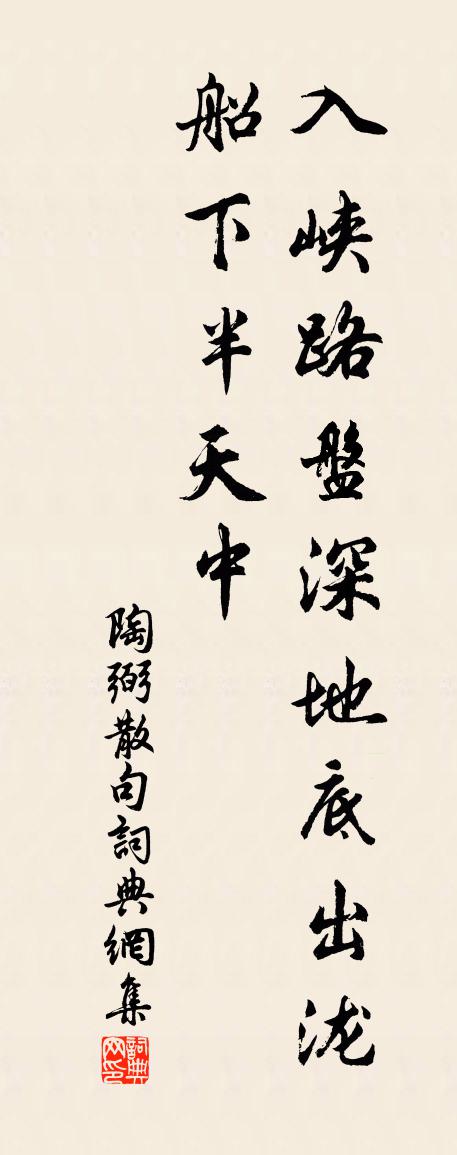 入峡路盤深地底出泷
船下半天中
陶弼散句詞典網集
詞典网印